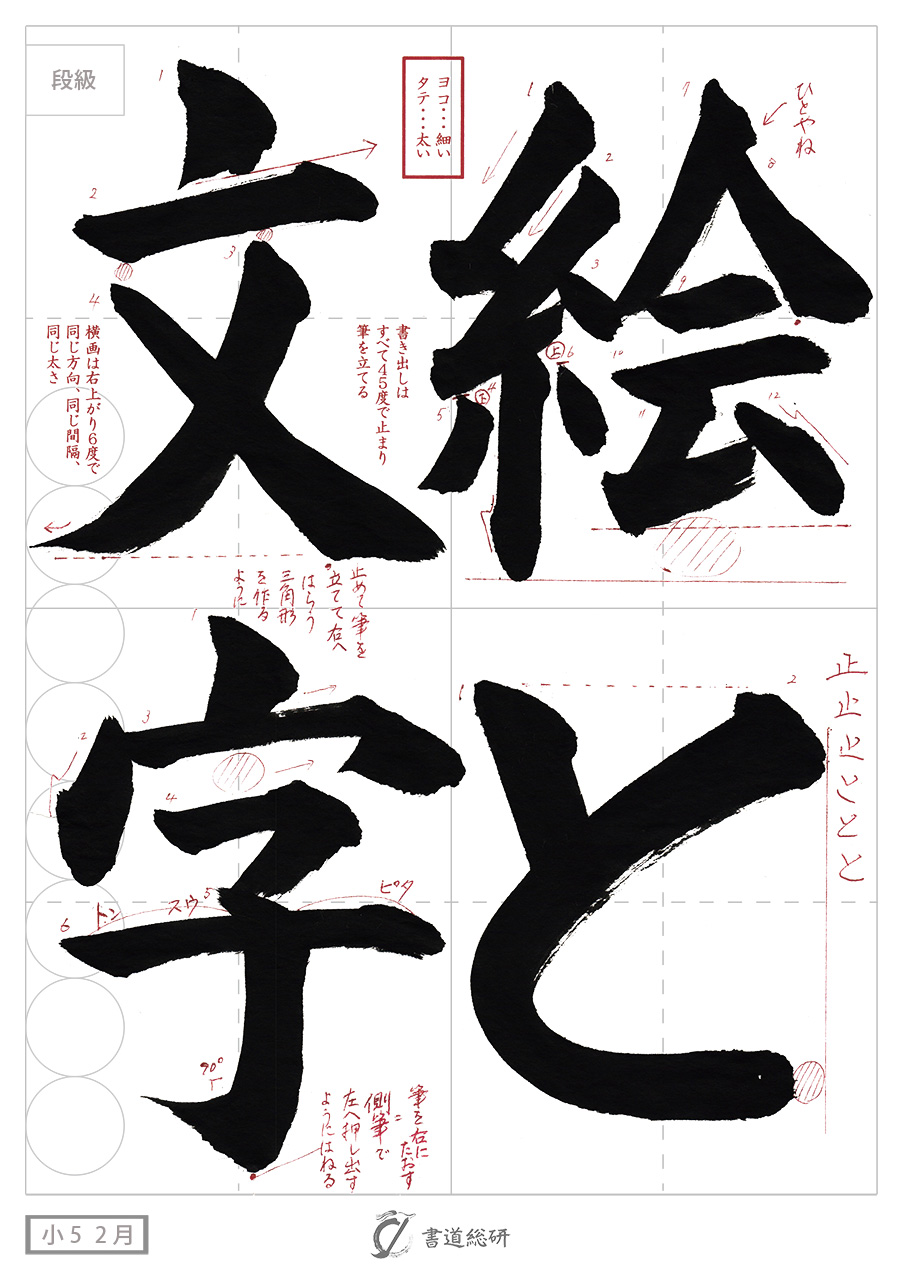 絵と
文字
段級
ヨコ・・・細い
タテ・・・太い
ひとやね
書き出しは
すべて45度で止まり
筆を立てる
横画は右上がり6度で
同じ方向、同じ間隔、
同じ太さ
止めて筆を
立てて右へ
はらう
三角形
を作る
ように
正止止ととと
トン
スウ
ピタ
90°
筆を右に
たおす
側筆で
左へ押し出す
ようにはねる
小5 2月
書道総研